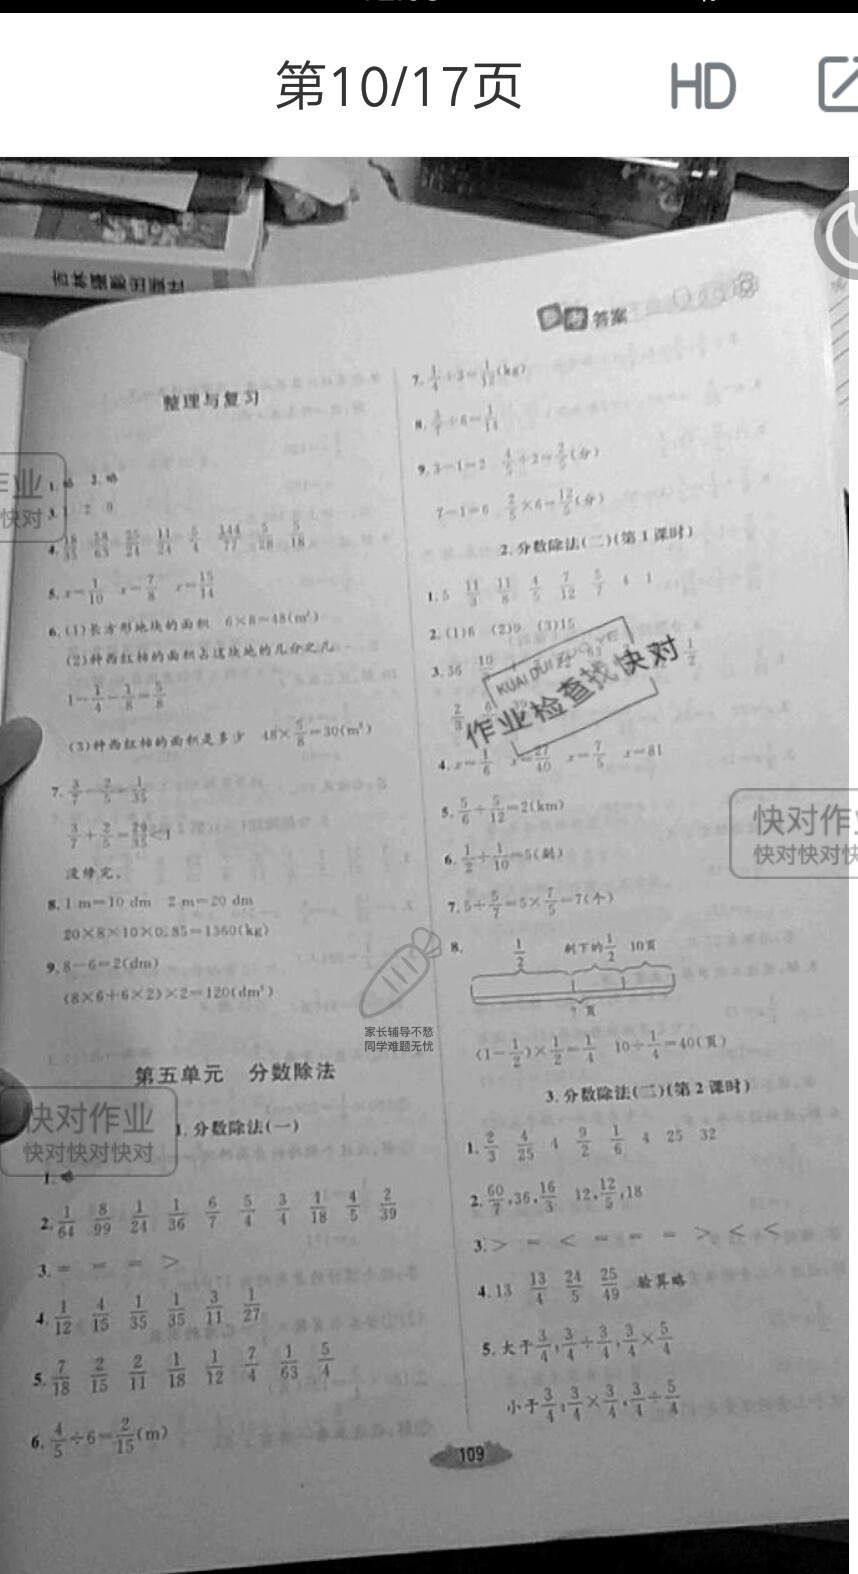 第10/17页 HD
参考答案
整理与复习
1.略 2.略
3.1 2 9
5.x=1/10 x=7/8 x=15/14
6.(1)长方形地块的面积 6×8=48(m²)
(2)种西红柿的面积占这块地的几分之几
1-1/4-1/8=5/8
(3)种西红柿的面积是多少 48×5/8=30(m²)
7.3/7-2/5=1/35
3/7+2/5=29/35<1
没修完。
8.1 m=10 dm 2 m=20 dm
20×8×10×0.85=1360(kg)
9.8-6=2(dm)
(8×6+6×2)×2=120(dm²)
第五单元 分数除法
1.分数除法(一)
1.略
2.1/64 8/99 1/24 1/36 6/7 5/4 3/4 1/18 4/5 2/39
3.= = = >
4.1/12 4/15 1/35 1/35 3/11 1/27
5.7/18 2/15 2/11 1/18 1/12 7/4 1/63 5/4
6.4/5÷6=2/15(m)
7.1/4÷3=1/12(kg)
8.3/7÷6=1/14
9.3-1=2 4/5÷2=2/5(分)
7-1=6 2/5×6=12/5(分)
2.分数除法(二)(第1课时)
1.5 11/3 11/8 4/5 7/12 5/7 4 1
2.(1)6 (2)9 (3)15
3.36
4.x=1/6 x=27/40 x=7/5 x=81
5.5/6÷5/12=2(km)
6.1/2÷1/10=5(副)
7.5÷5/7=5×7/5=7(个)
8. 1/2 剩下的1/2 10页
?页
(1-1/2)×1/2=1/4 10÷1/4=40(页)
3.分数除法(二)(第2课时)
1.2/3 4/25 4 9/2 1/6 4 25 32
2.60/7,36,16/3 12,12/5,18
3.> = < = = = > < <
4.13 13/4 24/5 25/49 验算略
5.大于3/4:3/4÷3/4,3/4×5/4
小于3/4:3/4×3/4,3/4÷5/4
109
作业检查找快对
家长辅导不愁
同学难题无忧
快对作业
快对快对快对
快对作
快对快对快
业
快对